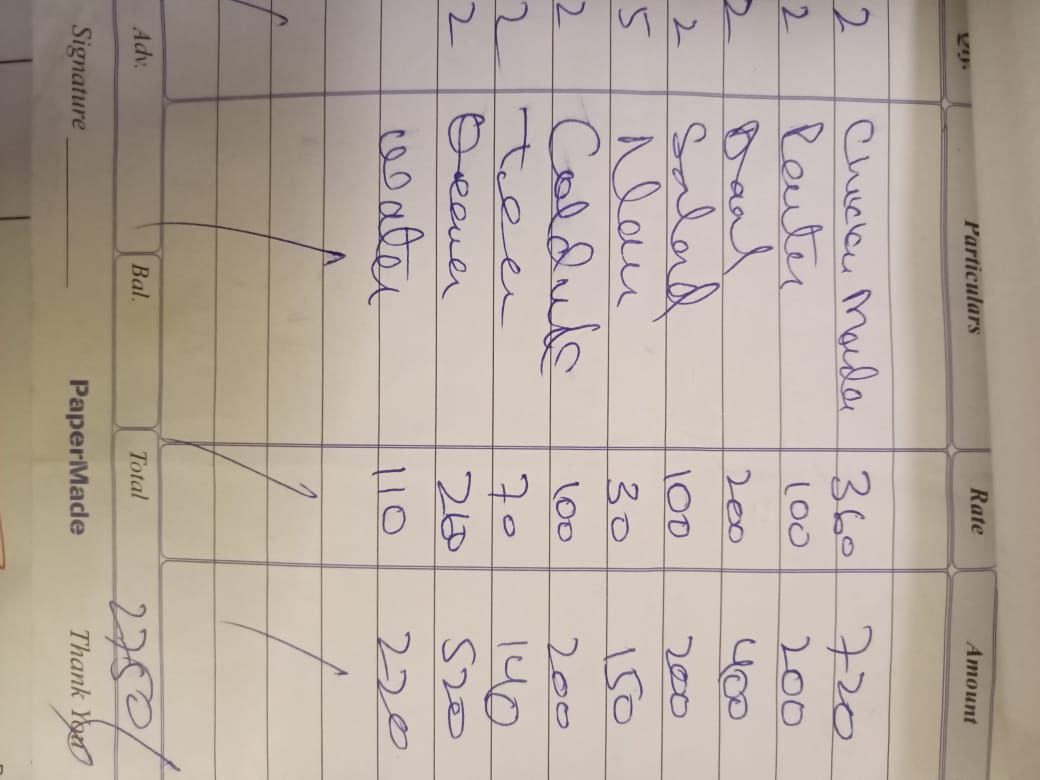 Qty. Particulars Rate Amount
2 Chicken Handi 360 720
2 Raita 100 200
2 Daal 200 400
2 Salad 100 200
5 Naan 30 150
2 Coldrink 100 200
2 Tea 70 140
2 260 520
2 water 110 220
Adv. Bal. Total 2750/
Signature PaperMade Thank You